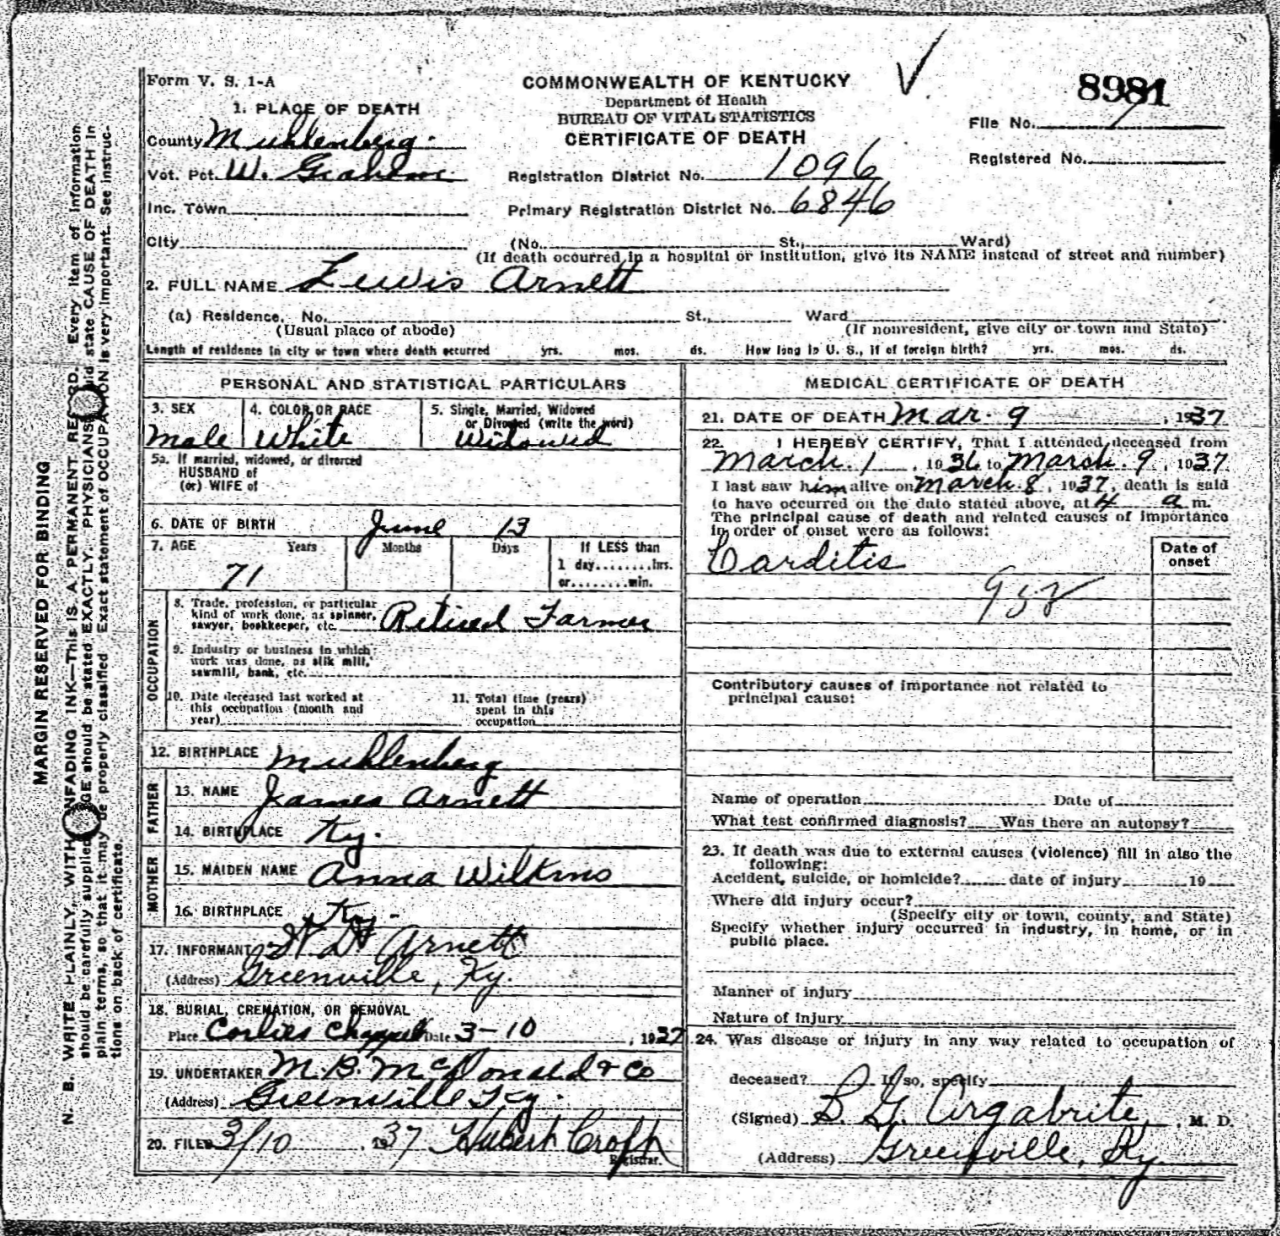 Form V. S. 1-A
COMMONWEALTH OF KENTUCKY
Department of Health
BUREAU OF VITAL STATISTICS
CERTIFICATE OF DEATH
8981
File No.
Registered No.
1. PLACE OF DEATH
County Muhlenberg.
Vot. Pct. W. Graham
Registration District No. 1096
Inc. Town
Primary Registration District No. 6846
City (No. St., Ward)
(If death occurred in a hospital or institution, give its NAME instead of street and number)
2. FULL NAME Lewis Arnett
(a) Residence, No. St., Ward
(Usual place of abode) (If nonresident, give city or town and State)
Length of residence in city or town where death occurred yrs. mos. ds. How long in U. S., if of foreign birth? yrs. mos. ds.
PERSONAL AND STATISTICAL PARTICULARS
3. SEX Male
4. COLOR OR RACE White
5. Single, Married, Widowed
or Divorced (write the word)
Widowed
5a. If married, widowed, or divorced
HUSBAND of
(or) WIFE of
6. DATE OF BIRTH June 13
7. AGE Years Months Days If LESS than
1 day........hrs.
or........min.
71
OCCUPATION
8. Trade, profession, or particular
kind of work done, as spinner,
sawyer, bookkeeper, etc. Retired Farmer
9. Industry or business in which
work was done, as silk mill,
sawmill, bank, etc.
10. Date deceased last worked at
this occupation (month and
year)
11. Total time (years)
spent in this
occupation
12. BIRTHPLACE Muhlenberg
FATHER
13. NAME James Arnett
14. BIRTHPLACE Ky.
MOTHER
15. MAIDEN NAME Anna Wilkins
16. BIRTHPLACE Ky.
17. INFORMANT Arnett
(Address) Greenville, Ky.
18. BURIAL, CREMATION, OR REMOVAL
Place Chappel Date 3-10, 1937
19. UNDERTAKER M. B. McDonald & Co
(Address) Greenville Ky.
20. FILED 3/10, 1937 Hubert Croft
Registrar.
MEDICAL CERTIFICATE OF DEATH
21. DATE OF DEATH Mar. 9, 1937
22. I HEREBY CERTIFY, That I attended deceased from
March. 1, 1936 to March. 9, 1937
I last saw him alive on March 8, 1937, death is said
to have occurred on the date stated above, at 4 a m.
The principal cause of death and related causes of importance
in order of onset were as follows:
Date of
onset
Carditis
Contributory causes of importance not related to
principal cause:
Name of operation Date of
What test confirmed diagnosis? Was there an autopsy?
23. If death was due to external causes (violence) fill in also the
following:
Accident, suicide, or homicide? date of injury 19
Where did injury occur?
(Specify city or town, county, and State)
Specify whether injury occurred in industry, in home, or in
public place.
Manner of injury
Nature of injury
24. Was disease or injury in any way related to occupation of
deceased? If so, specify
(Signed) B. G. Argabrite, M. D.
(Address) Greenville, Ky.
MARGIN RESERVED FOR BINDING
N. B. WRITE PLAINLY, WITH UNFADING INK—THIS IS A PERMANENT RECORD. Every item of information
should be carefully supplied. AGE should be stated EXACTLY. PHYSICIANS should state CAUSE OF DEATH in
plain terms, so that it may be properly classified. Exact statement of OCCUPATION is very important. See instruc-
tions on back of certificate.